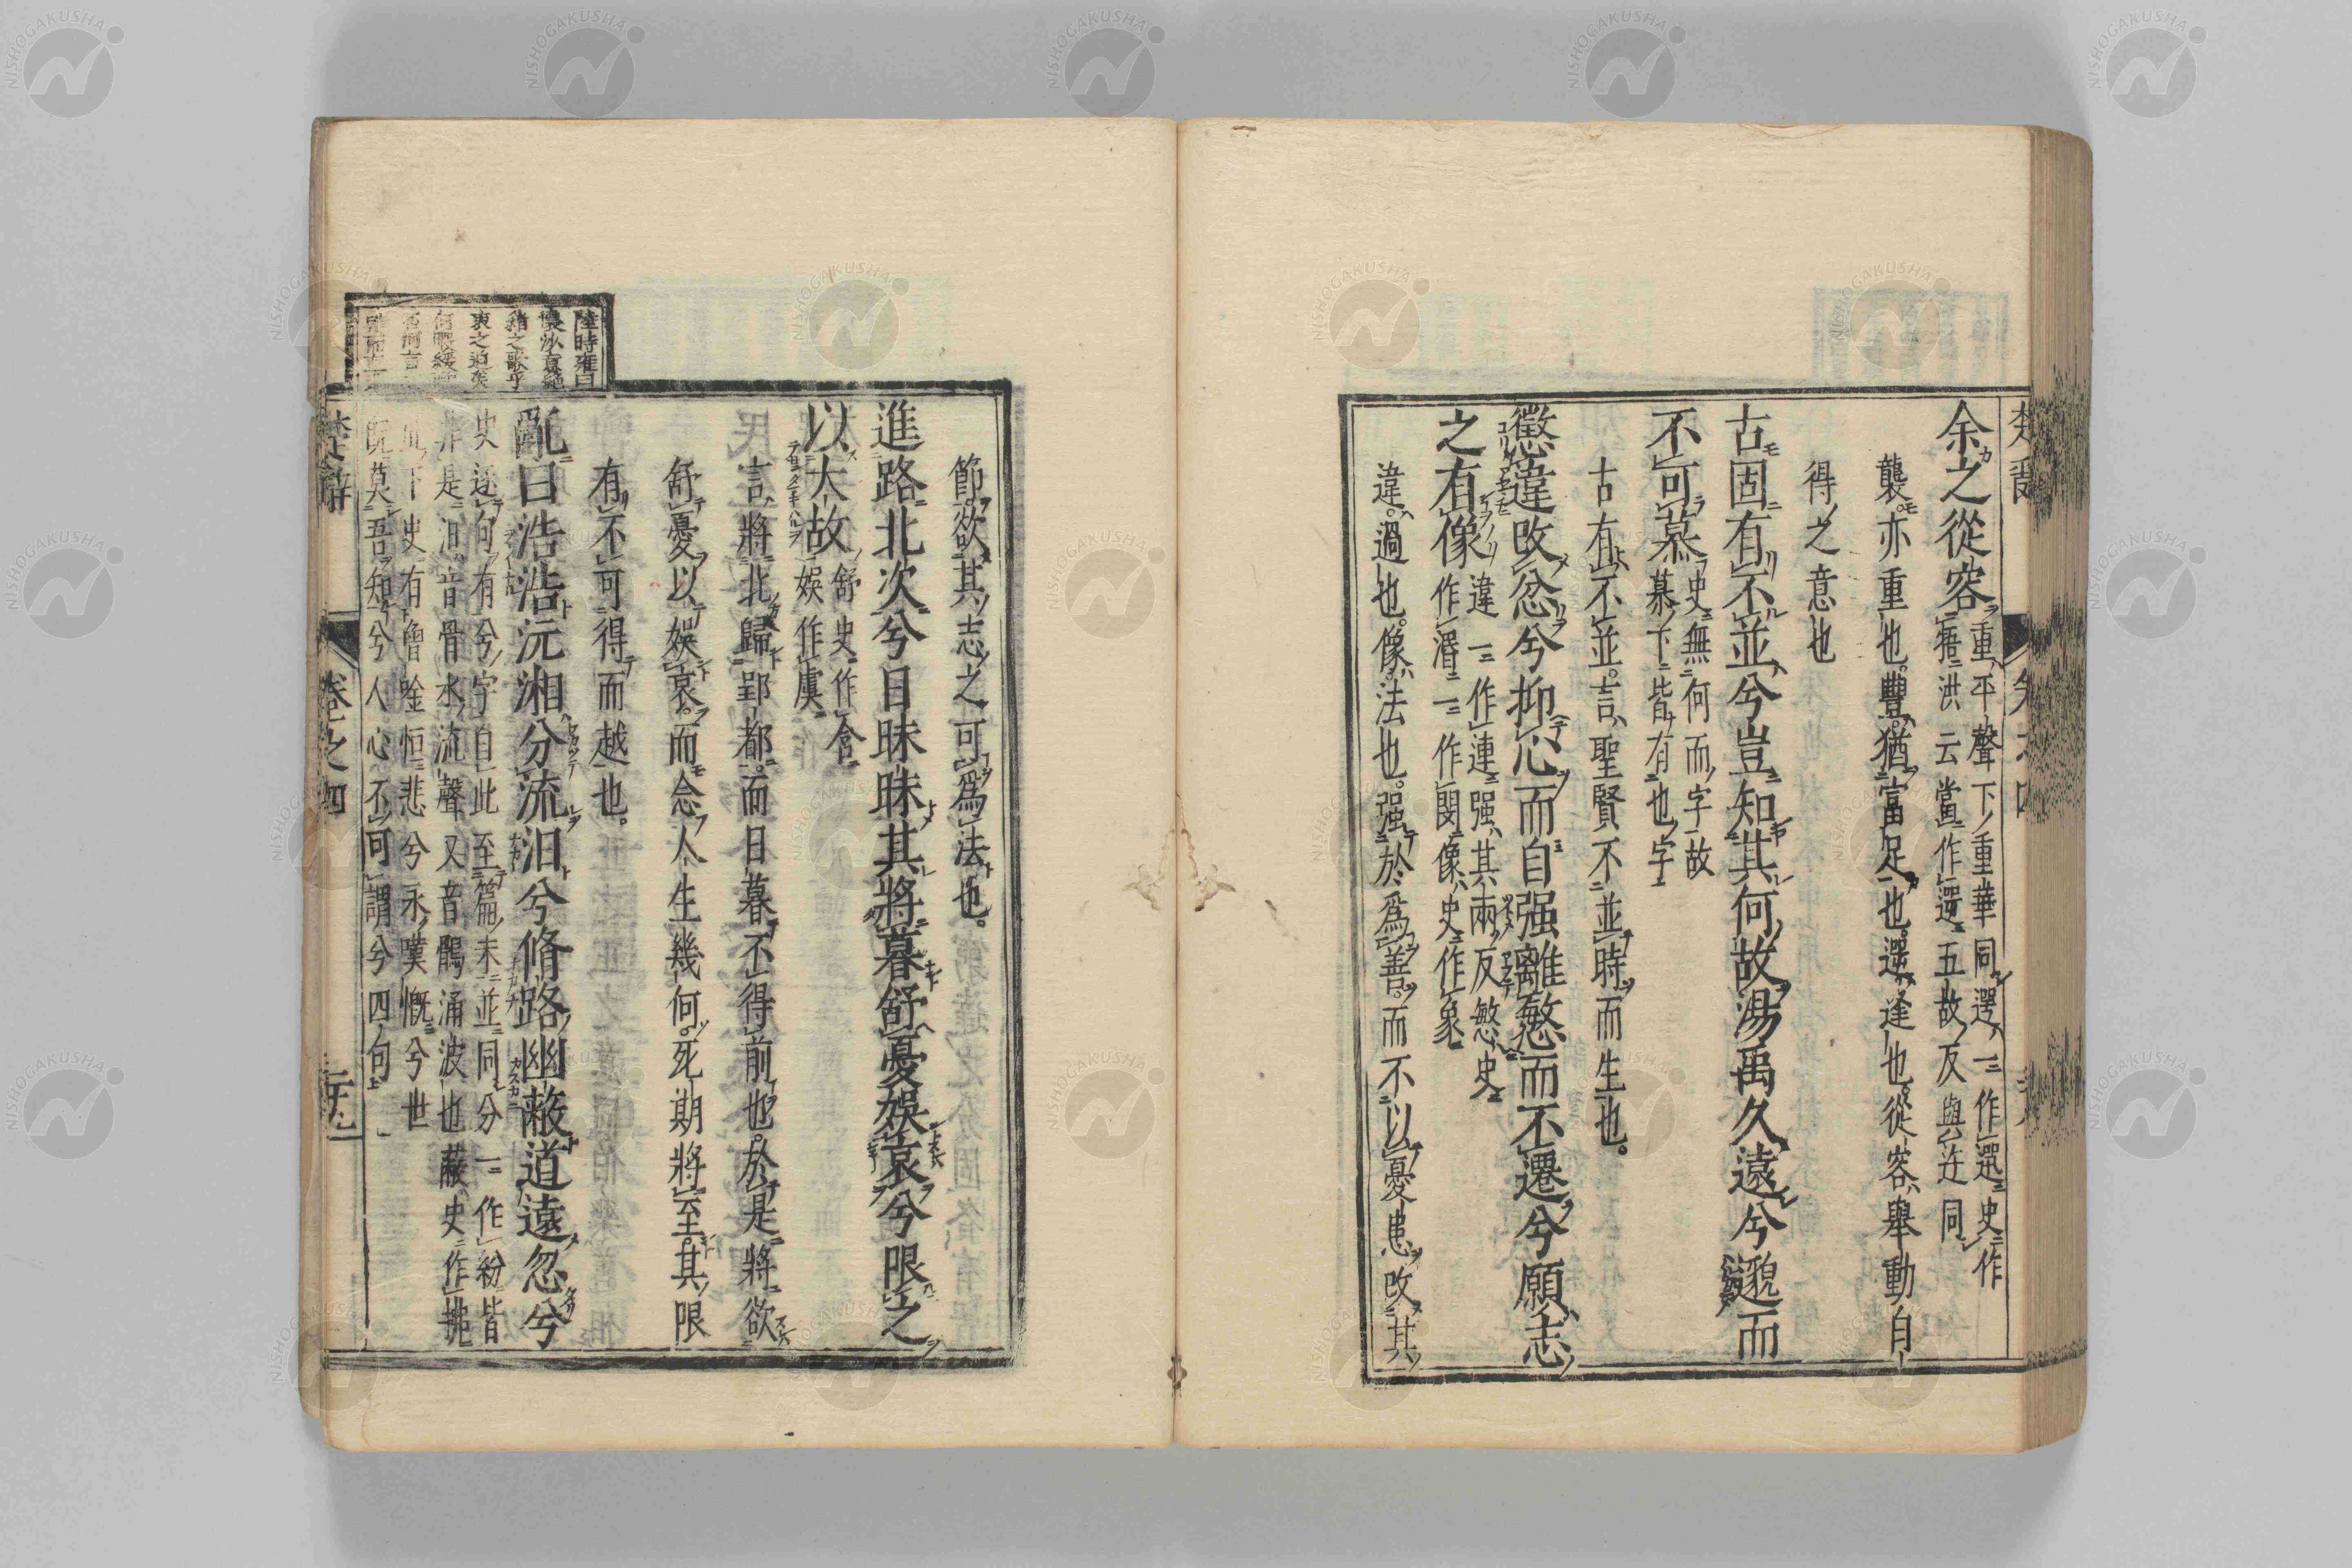 余之從容
重平聲下重華同遌一作遻史作
牾洪云當作遻五故反與迕同
襲亦重也豐猶富足也遌逢也從容舉動自
得之意也
古固有不並兮豈知其何故湯禹久遠兮邈而
不可慕
史無何而字故
慕下皆有也字
古有不並言聖賢不並時而生也。
懲違改忿兮抑心而自强離慜而不遷兮願志
之有像
違一作連强其兩反慜史
作湣一作閔像史作象
違過也。像法也。强於爲善而不以憂患改其
節欲其志之可爲法也。
進路北次兮日昧昧其將暮舒憂娛哀兮限之
以大故
舒史作舍
娛作虞
言將北歸郢都而日暮不得前也。於是將欲
舒憂以娛哀。而念人生幾何。死期將至其限
有不可得而越也。
陸時雍曰
懷沙哀絕
之歌乎
衷之迫矣
亂曰浩浩沅湘分流汨兮脩路幽蔽道遠忽兮
史逐句有兮字自此至篇末並同分一作紛皆
非是汨音骨水流聲又音鶻涌波也蔽史作拂
忽下史有曾唫恒悲兮永嘆慨兮世
既莫吾知兮人心不可謂兮四句
楚辭
卷之四